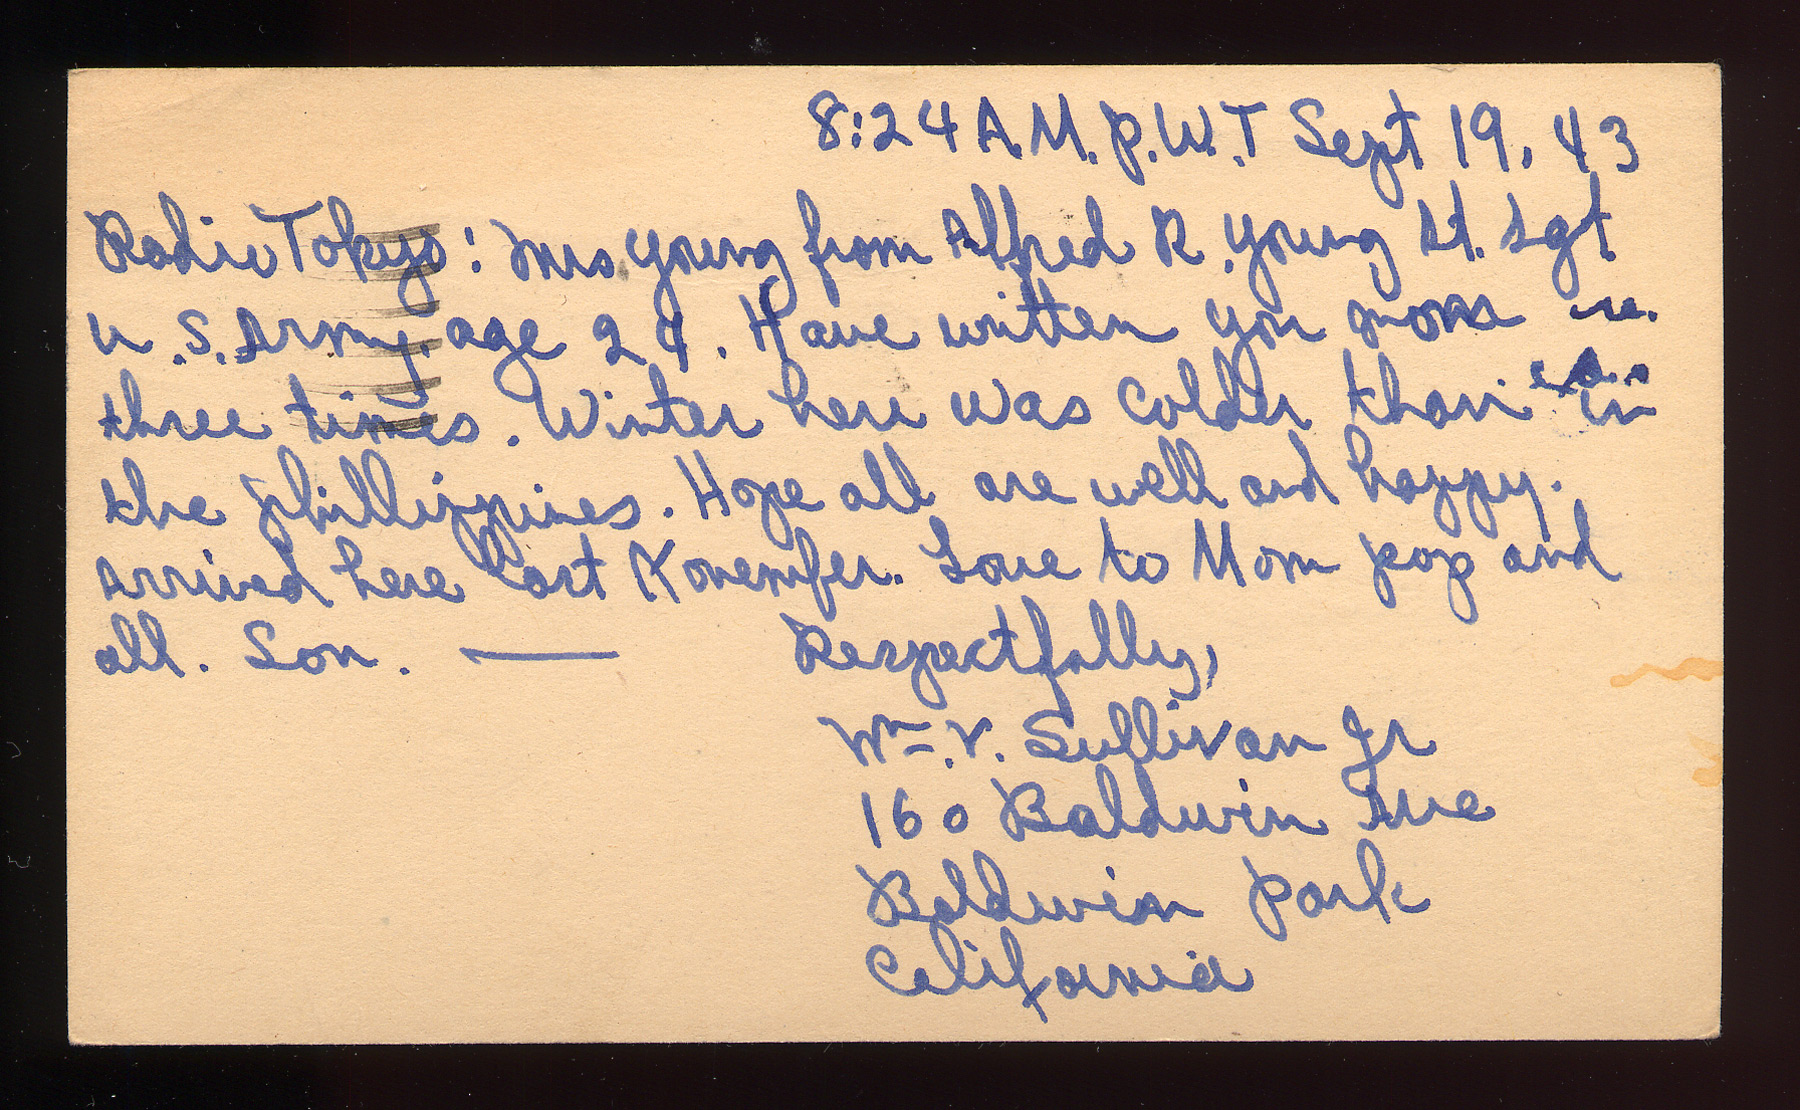 8:24 A.M. P.W.T Sept 19, 43
Radio Tokyo: Mrs Young from Alfred R. Young St. Sgt
U.S. Army. age 29. Have written you mom
three times. Winter here was colder than in
the Phillippines. Hope all are well and happy.
Arrived here last November. Love to Mom pop and
all. Son. — Respectfully,
Wm. V. Sullivan Jr
160 Baldwin Ave
Baldwin Park
California